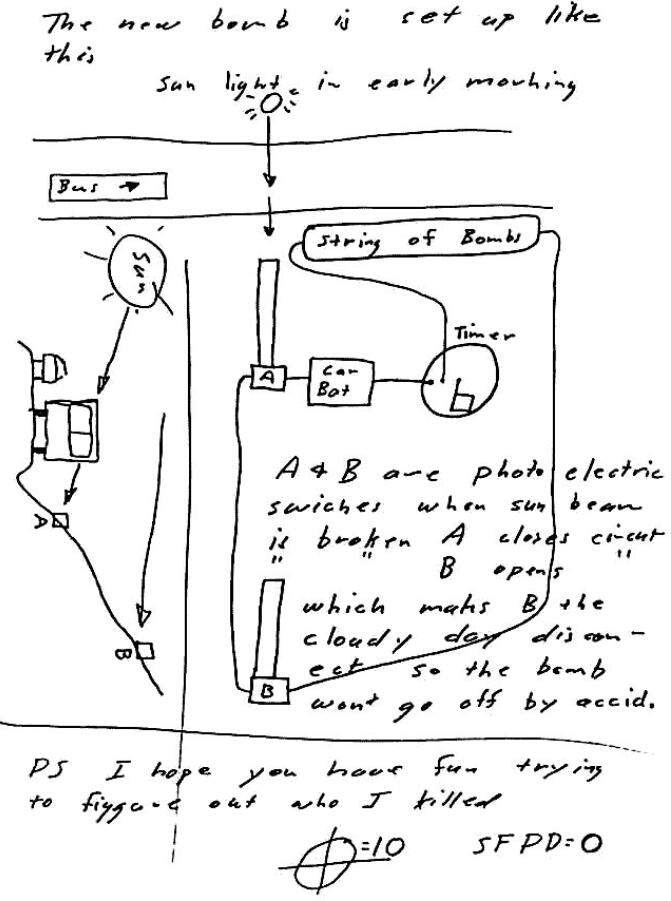 The new bomb is set up like
this
sun light in early morning
Bus
String of Bombs
Sun
Timer
A
Car
Bat
A & B are photo electric
swiches when sun beam
is broken A closes circut
" " B opens "
which mahs B the
cloudy day discon-
ect so the bomb
wont go off by accid.
A
B
B
PS I hope you have fun trying
to figgure out who I killed
=10 SFPD=0